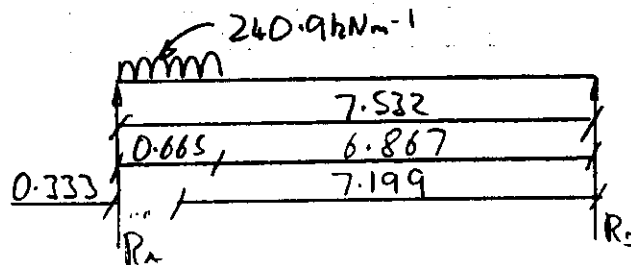 240.9kNm-1
7.532
0.665 6.867
0.333 7.199
RA